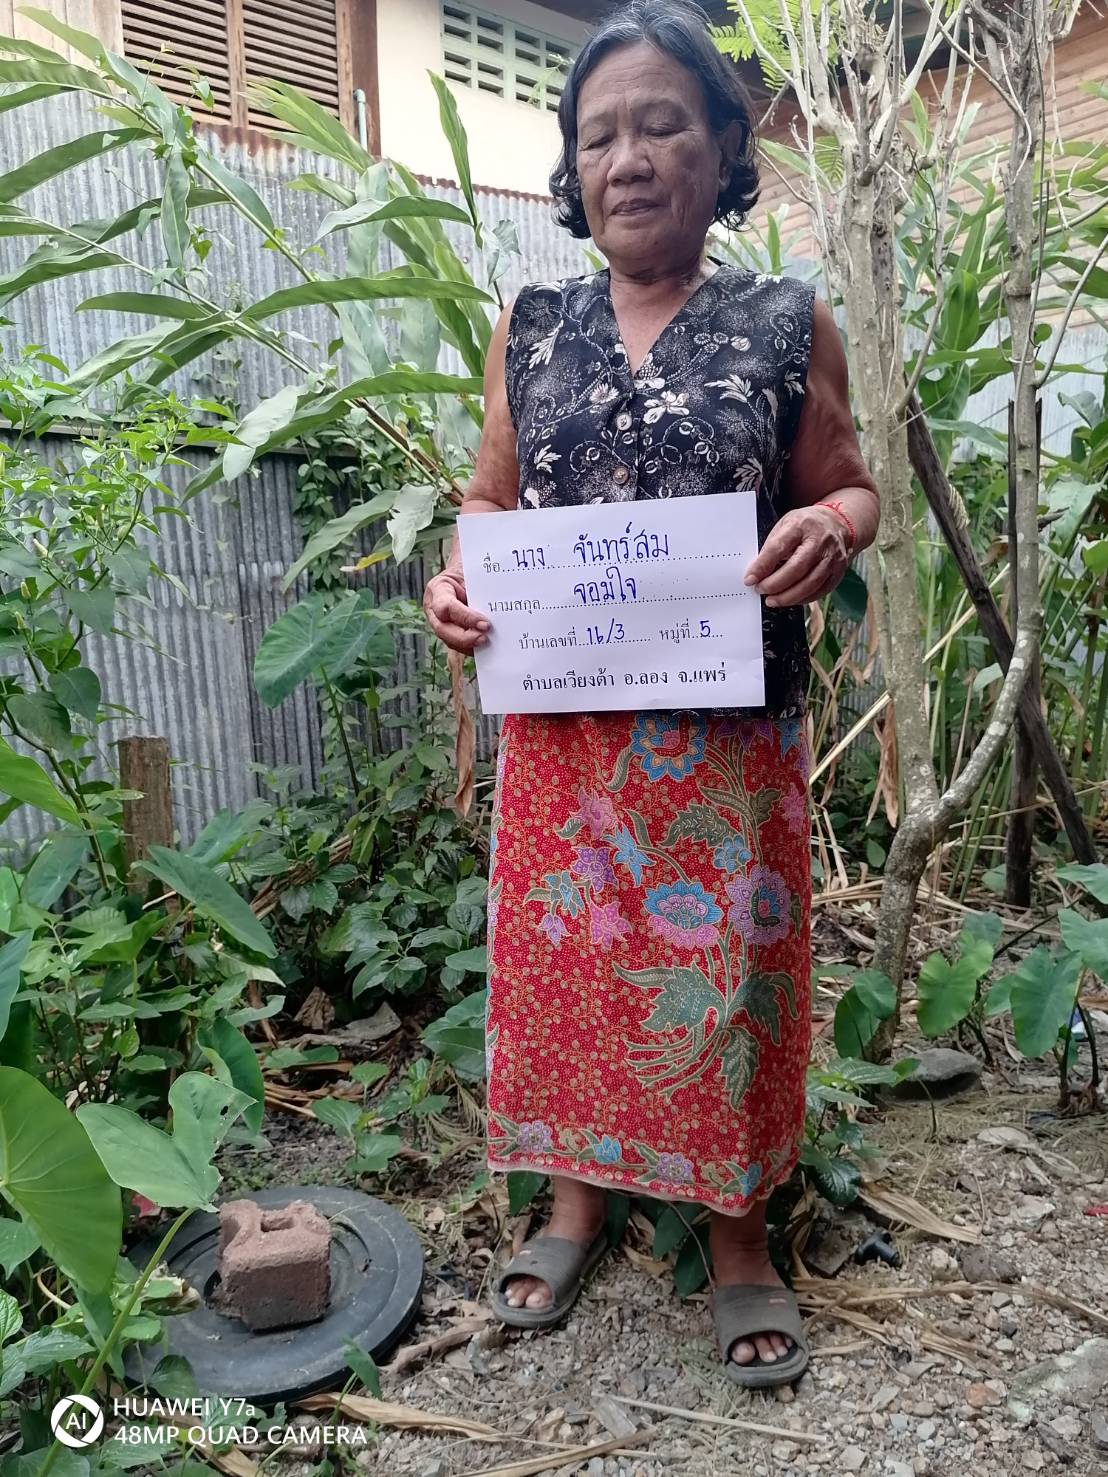 ชื่อ นาง จันทร์สม
นามสกุล จอมใจ
บ้านเลขที่ 16/3 หมู่ที่ 5
ตำบลเวียงต้า อ.ลอง จ.แพร่
AI HUAWEI Y7a
48MP QUAD CAMERA